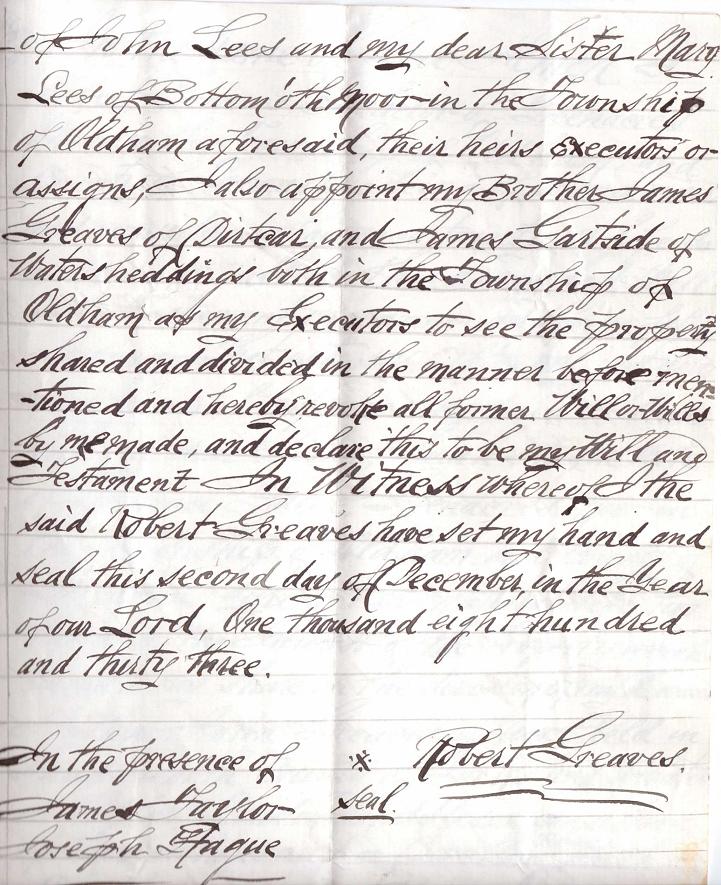 of John Lees and my dear Sister Mary
Lees of Bottom'oth Moor in the Township
of Oldham aforesaid, their heirs Executors or
assigns, I also appoint my Brother James
Greaves of Dirtcar, and James Gartside of
Waterssheddings both in the Township of
Oldham as my Executors to see the property
shared and divided in the manner before men-
-tioned and hereby revoke all former Will or Wills
by me made, and declare this to be my Will and
Testament In Witness whereof I the
said Robert Greaves have set my hand and
seal this second day of December, in the Year
of our Lord, One thousand eight hundred
and thirty three.
In the presence of
James Taylor
Joseph Hague
seal.
Robert Greaves.